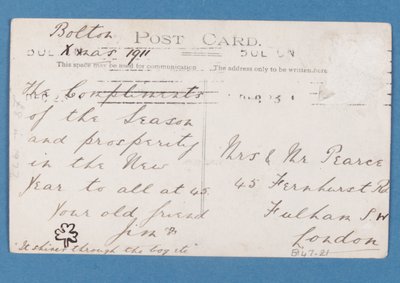 Bolton
Xmas 1911
POST CARD.
This space may be used for communication
The address only to be written here
The Compliments
of the Season
and prosperity
in the New
Year to all at 45
Your old friend
Jim
"It shines through the bog
Mrs & Mr Pearce
45 Fernhurst Rd
Fulham S W
London
B47-21